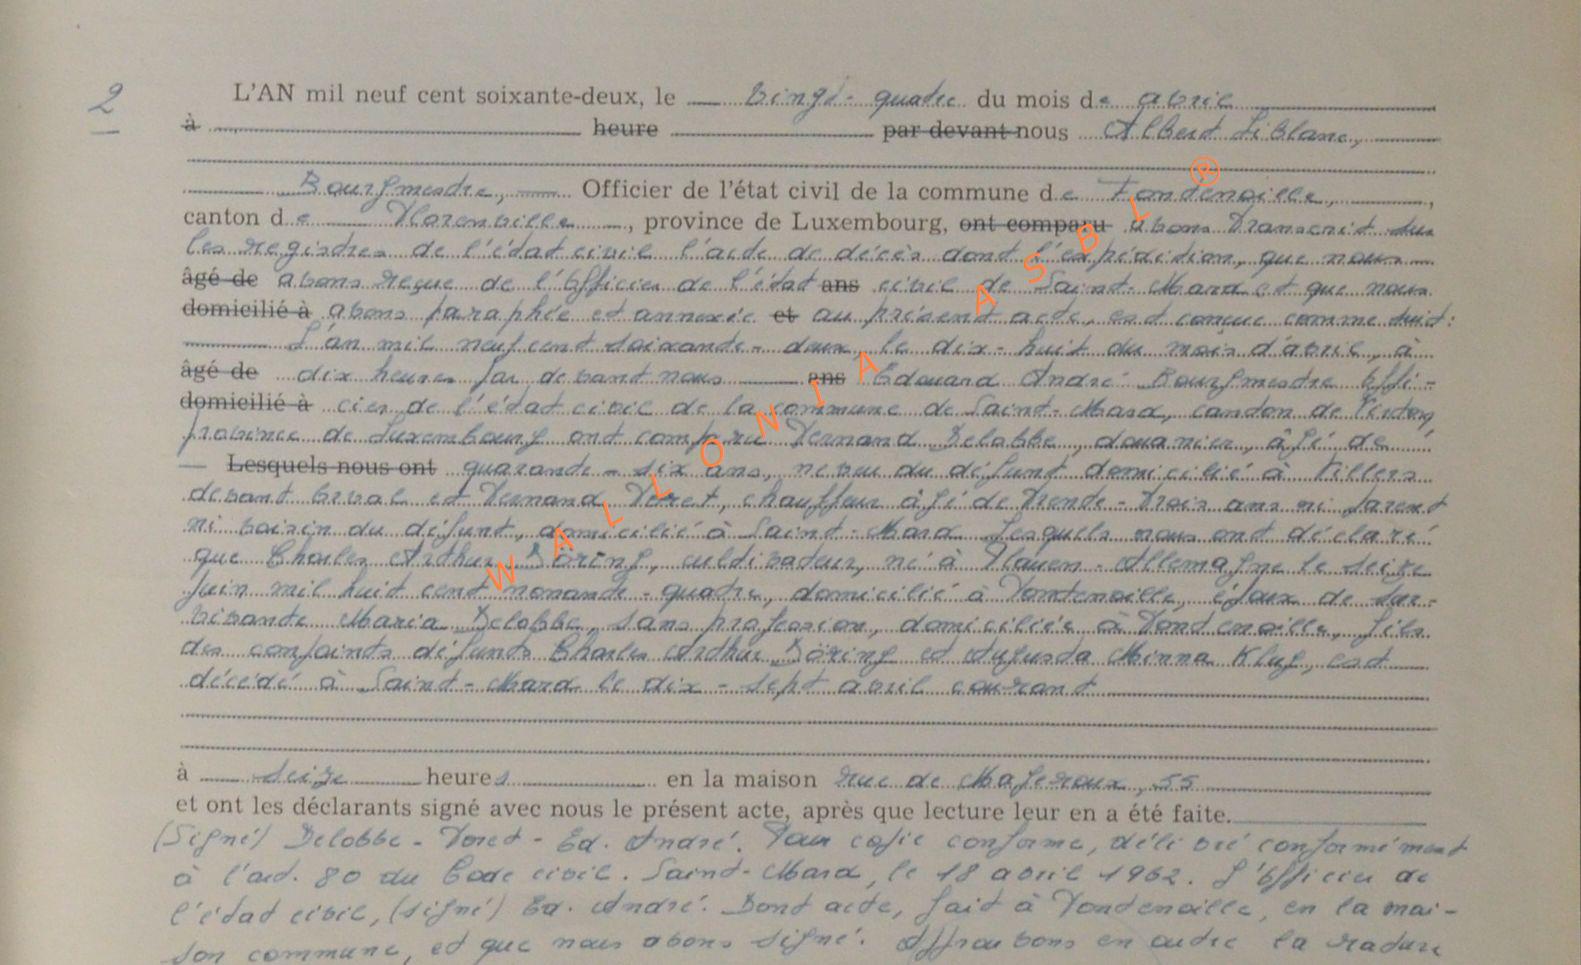 2 L'AN mil neuf cent soixante-deux, le vingt-quatre du mois de avril
à heure par devant nous Albert Liblanc,
Bourgmestre, Officier de l'état civil de la commune de Fontenoille,
canton de Florenville, province de Luxembourg, ont comparu avons transcrit sur
les registres de l'état civil l'acte de décès dont l'expédition, que nous
âgé de avons reçue de l'Officier de l'état ans civil de Saint-Mard et que nous
domicilié à avons paraphée et annexée et au présent acte, est conçue comme suit:
L'an mil neuf cent soixante-deux, le dix-huit du mois d'avril, à
âgé de dix heures par devant nous ans Edouard André Bourgmestre Offi-
domicilié à cier de l'état civil de la commune de Saint-Mard, canton de Virton,
province de Luxembourg ont comparu Fernand Delobbe, douanier, âgé de
Lesquels nous ont quarante-six ans, neveu du défunt domicilié à Villers
devant Orval et Fernand Voret, chauffeur âgé de trente-trois ans ni parent
ni voisin du défunt, domicilié à Saint-Mard. Lesquels nous ont déclaré
que Charles Arthur Döring, cultivateur, né à Plauen-Allemagne le seize
juin mil huit cent nonante-quatre, domicilié à Fontenoille, époux de sur-
vivante Maria Delobbe, sans profession, domiciliée à Fontenoille, fils
des conjoints défunts Charles Arthur Döring et Augusta Minna Klug, est
décédé à Saint-Mard le dix-sept avril courant
à seize heures en la maison rue de Mageroux, 55
et ont les déclarants signé avec nous le présent acte, après que lecture leur en a été faite.
(Signé) Delobbe - Voret - Ed. André. Pour copie conforme, délivré conformément
à l'art. 80 du Code civil. Saint-Mard, le 18 avril 1962. L'Officier de
l'état civil, (signé) Ed. André. Dont acte, fait à Fontenoille, en la mai-
son commune, et que nous avons signé. Approuvons en outre la rature
WALLONIA ASBL ®